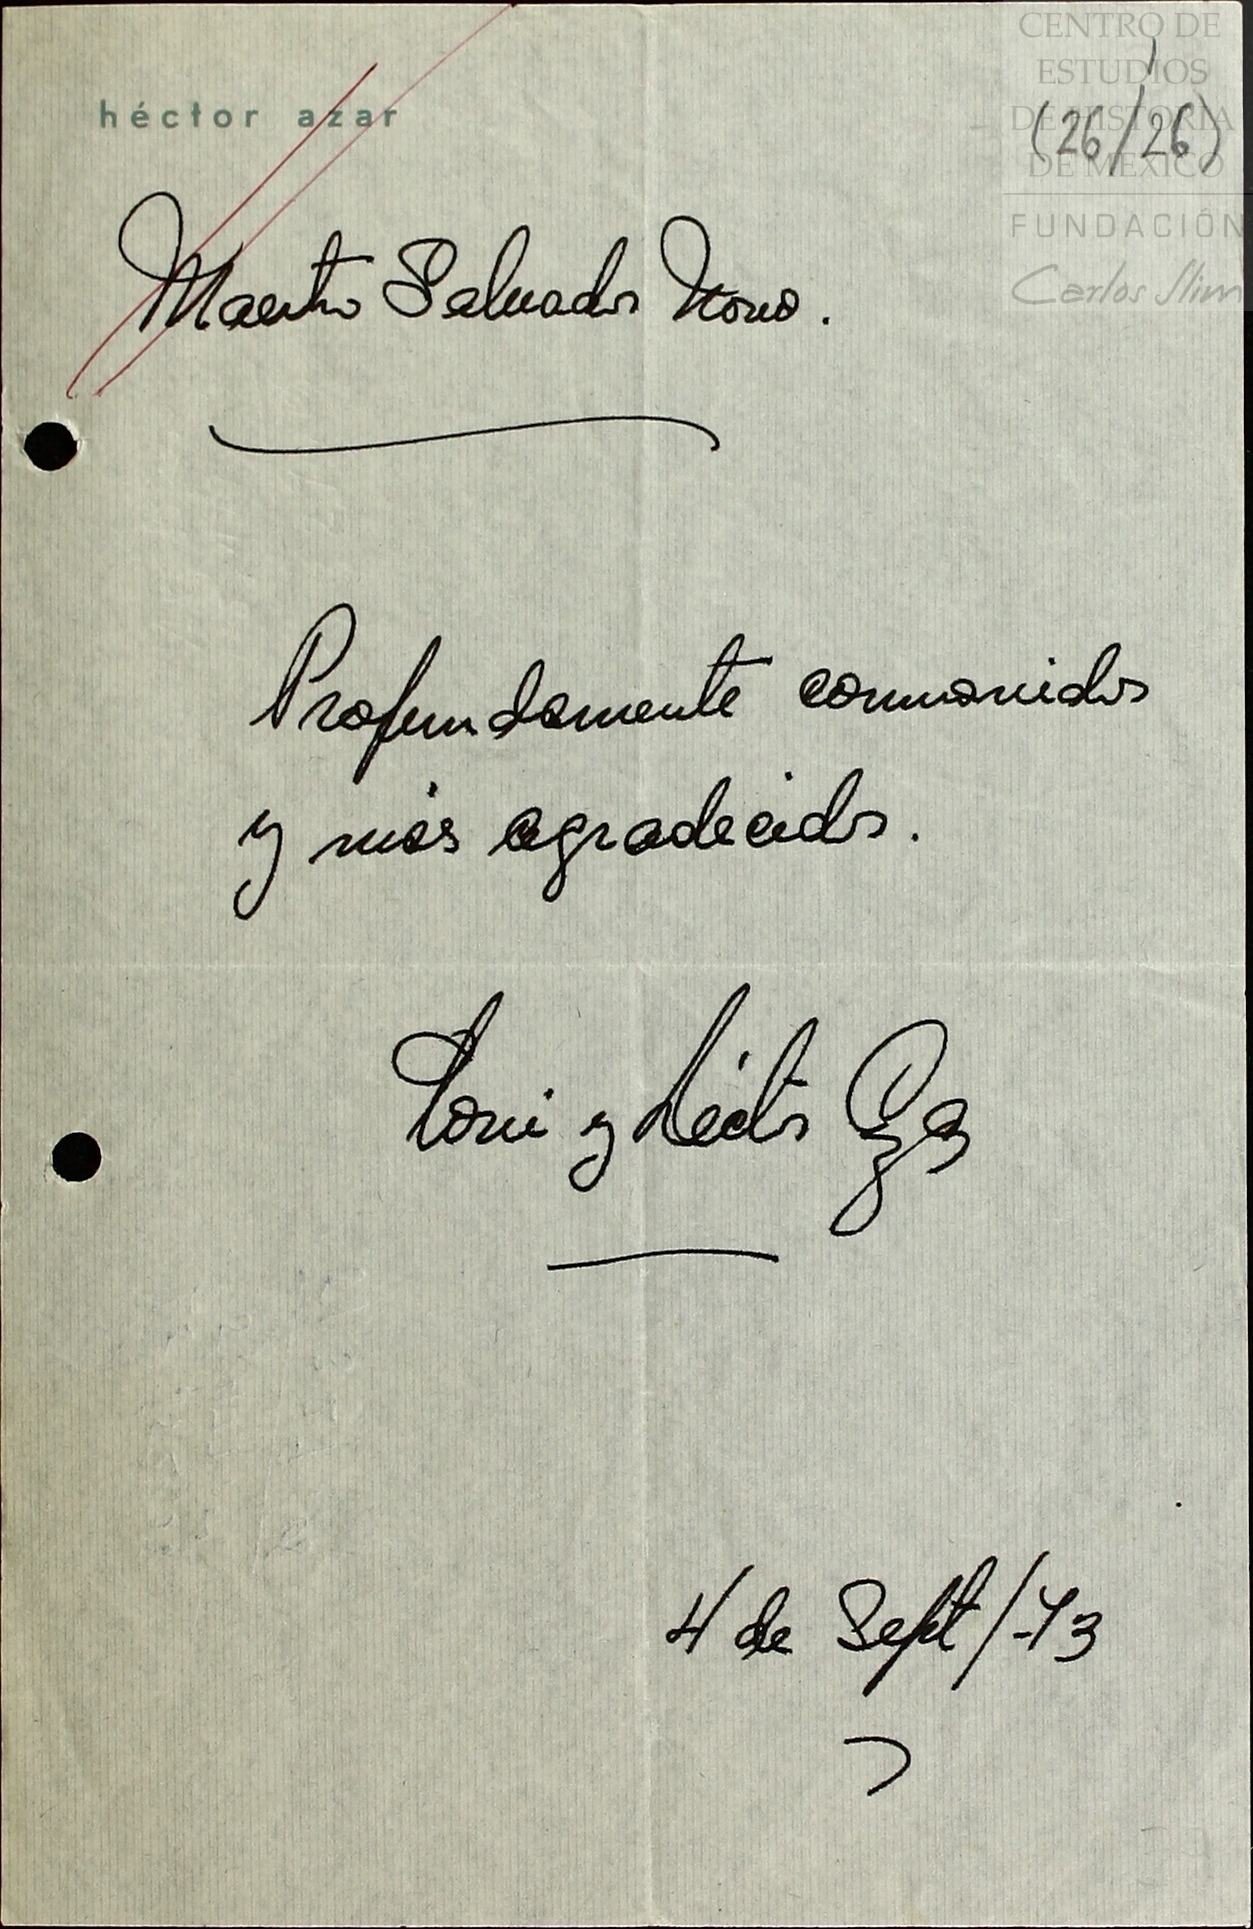 CENTRO DE
ESTUDIOS
DE HISTORIA
DE MÉXICO
FUNDACIÓN
Carlos Slim
(26/26)
héctor azar
Maestro Salvador Novo.
Profundamente conmovidos
y más agradecidos.
y Héctor Azar
4 de Sept/-73